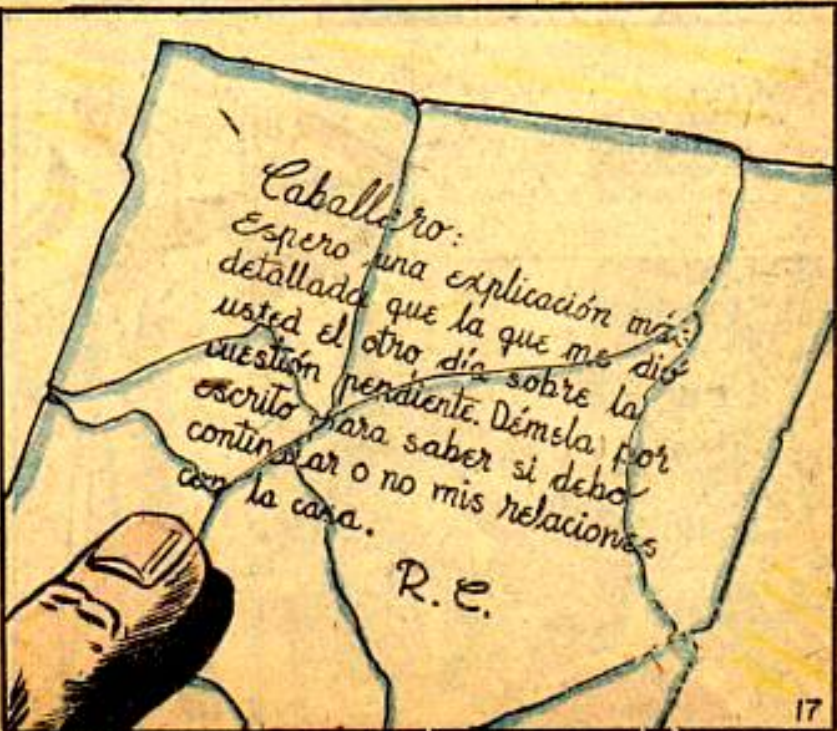 Caballero:
Espero una explicación más
detallada que la que me dió
usted el otro día sobre la
cuestión pendiente. Démela por
escrito para saber si debo
continuar o no mis relaciones
con la casa.
R. C.
17